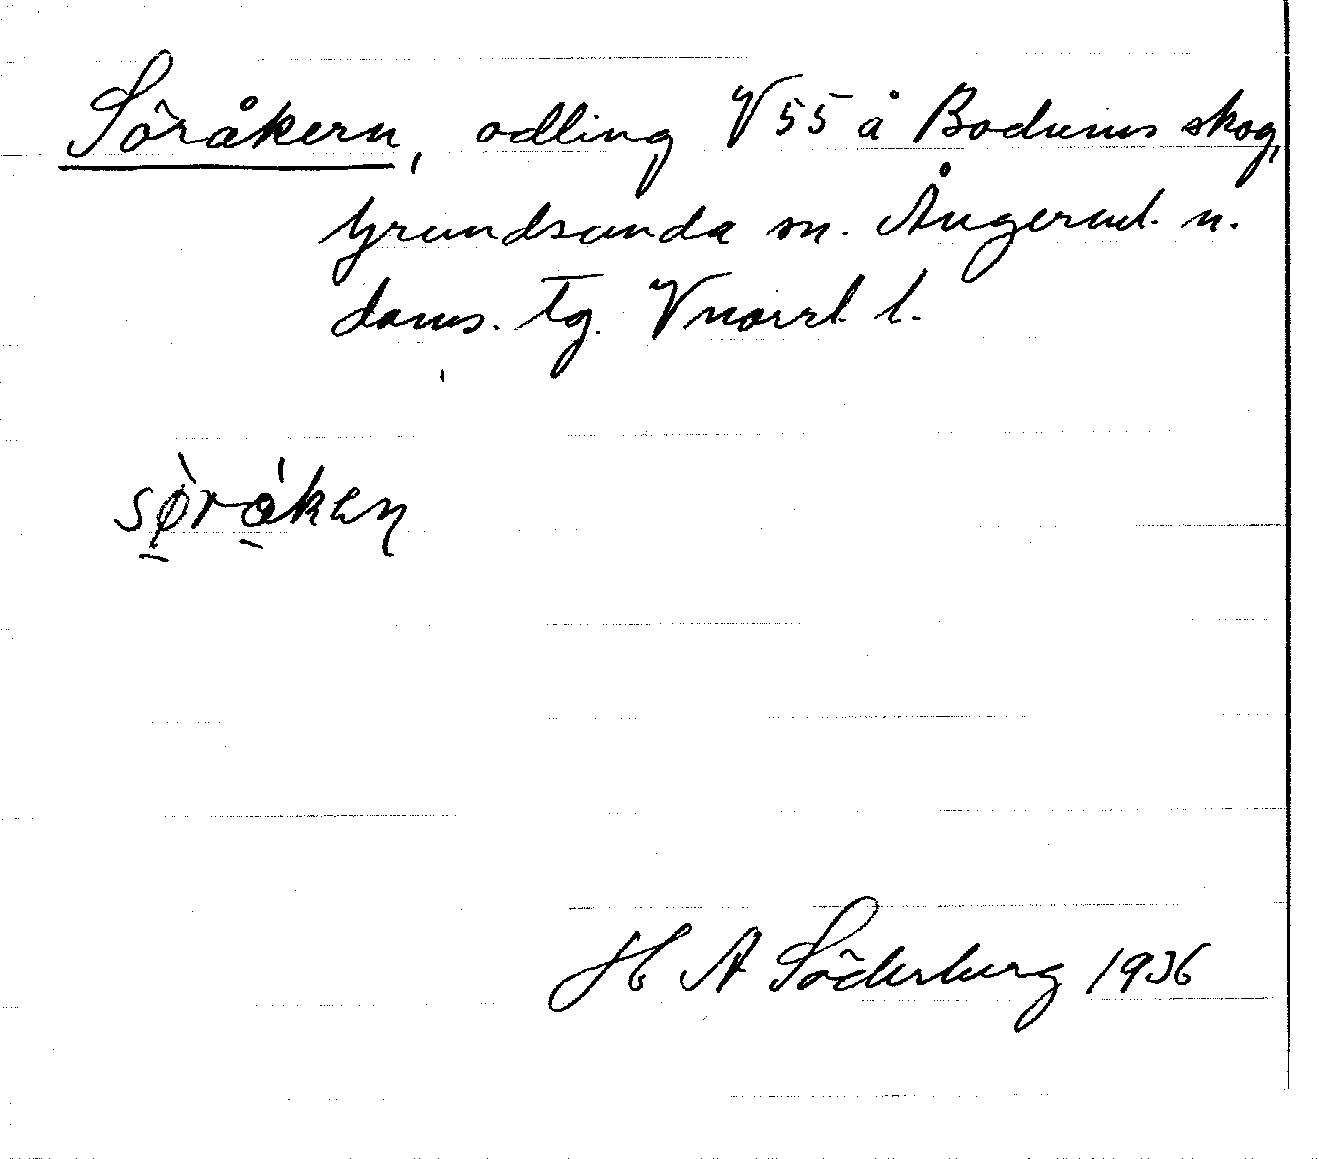 Söråkern, odling V 55 å Bodums skog,
Grundsunda sn. Ångerml. n.
doms. tg. Vnorrl l.
sø̀råkeɳ
H A Söderberg 1936